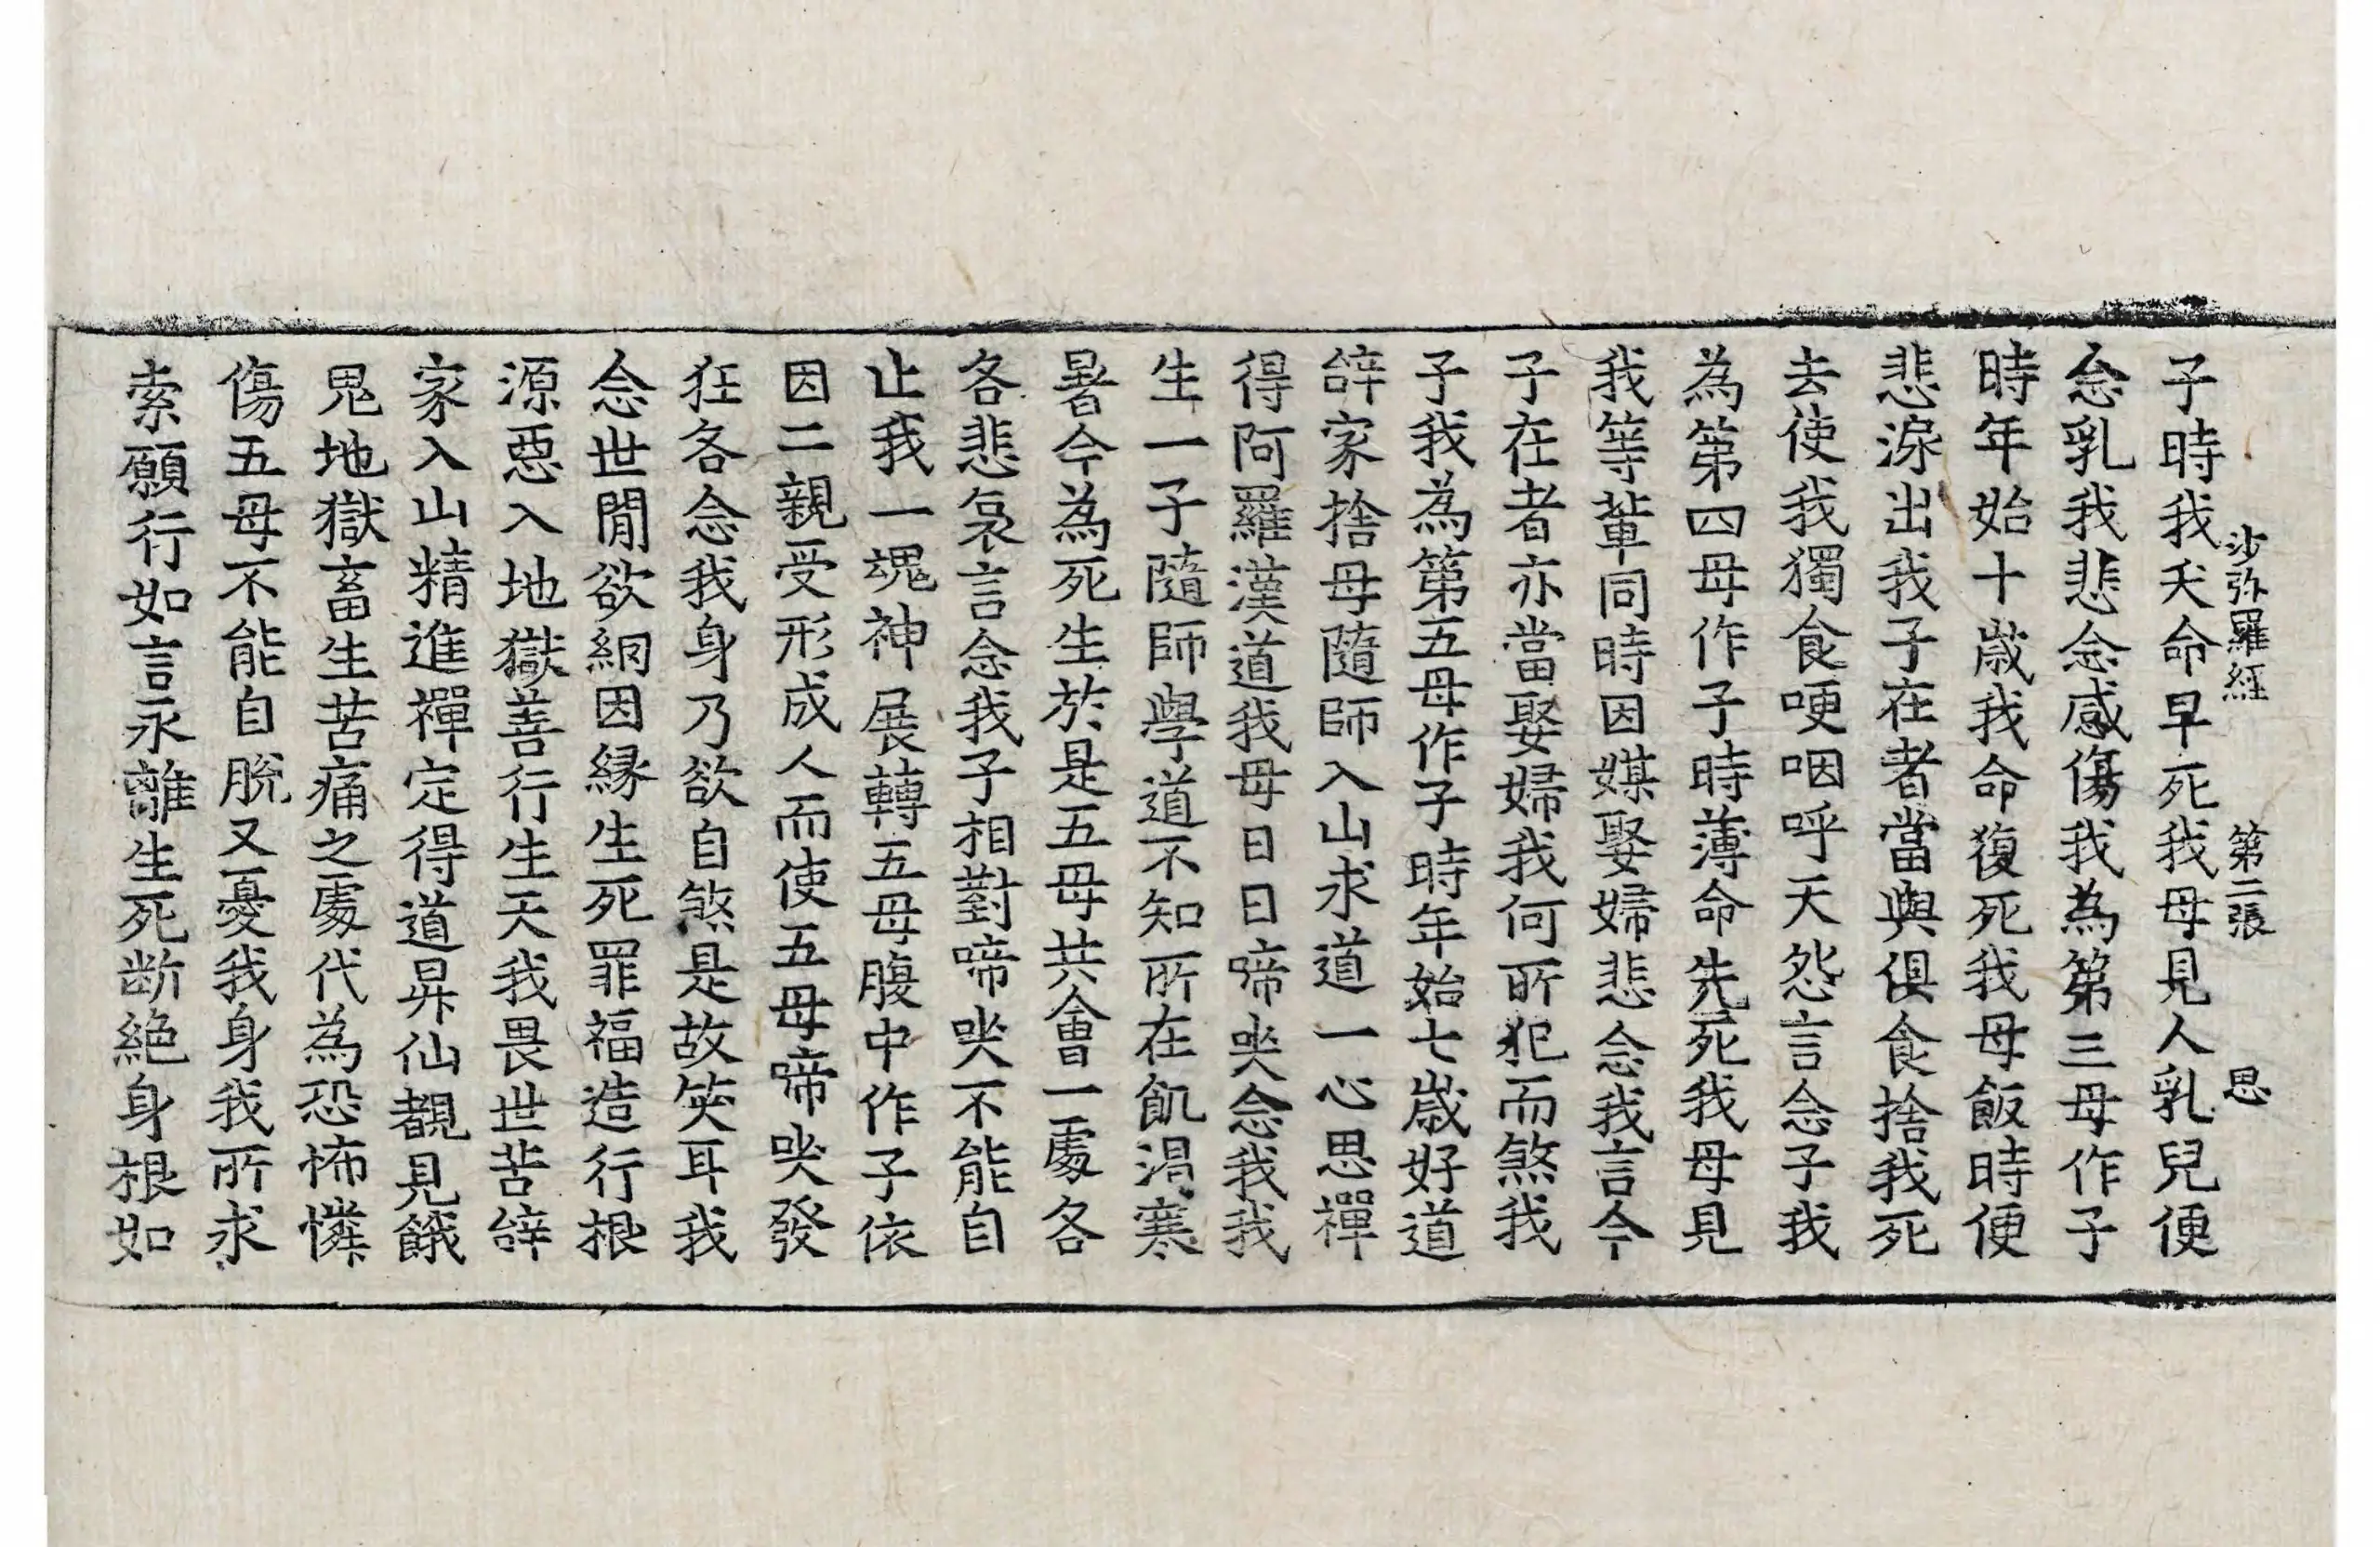 沙弥羅経 第二張 思
子時我夭命早死我母見人乳兒便
念乳我悲念感傷我為第三母作子
時年始十歲我命復死我母飯時便
悲淚出我子在者當與俱食捨我死
去使我獨食哽咽呼天怨言念子我
為第四母作子時薄命先死我母見
我等輩同時因媒娶婦悲念我言今
子在者亦當娶婦我何所犯而煞我
子我為第五母作子時年始七歲好道
辤家捨母隨師入山求道一心思禪
得阿羅漢道我母日日啼哭念我我
生一子隨師學道不知所在飢渴寒
暑今為死生於是五母共會一處各
各悲哀言念我子相對啼哭不能自
止我一魂神展轉五母腹中作子依
因二親受形成人而使五母啼哭發
狂各念我身乃欲自煞是故笑耳我
念世閒欲網因緣生死罪福造行根
源惡入地獄善行生天我畏世苦辤
家入山精進禪定得道昇仙覩見餓
鬼地獄畜生苦痛之處代為恐怖憐
傷五母不能自脫又憂我身我所求
索願行如言永離生死断絕身根如